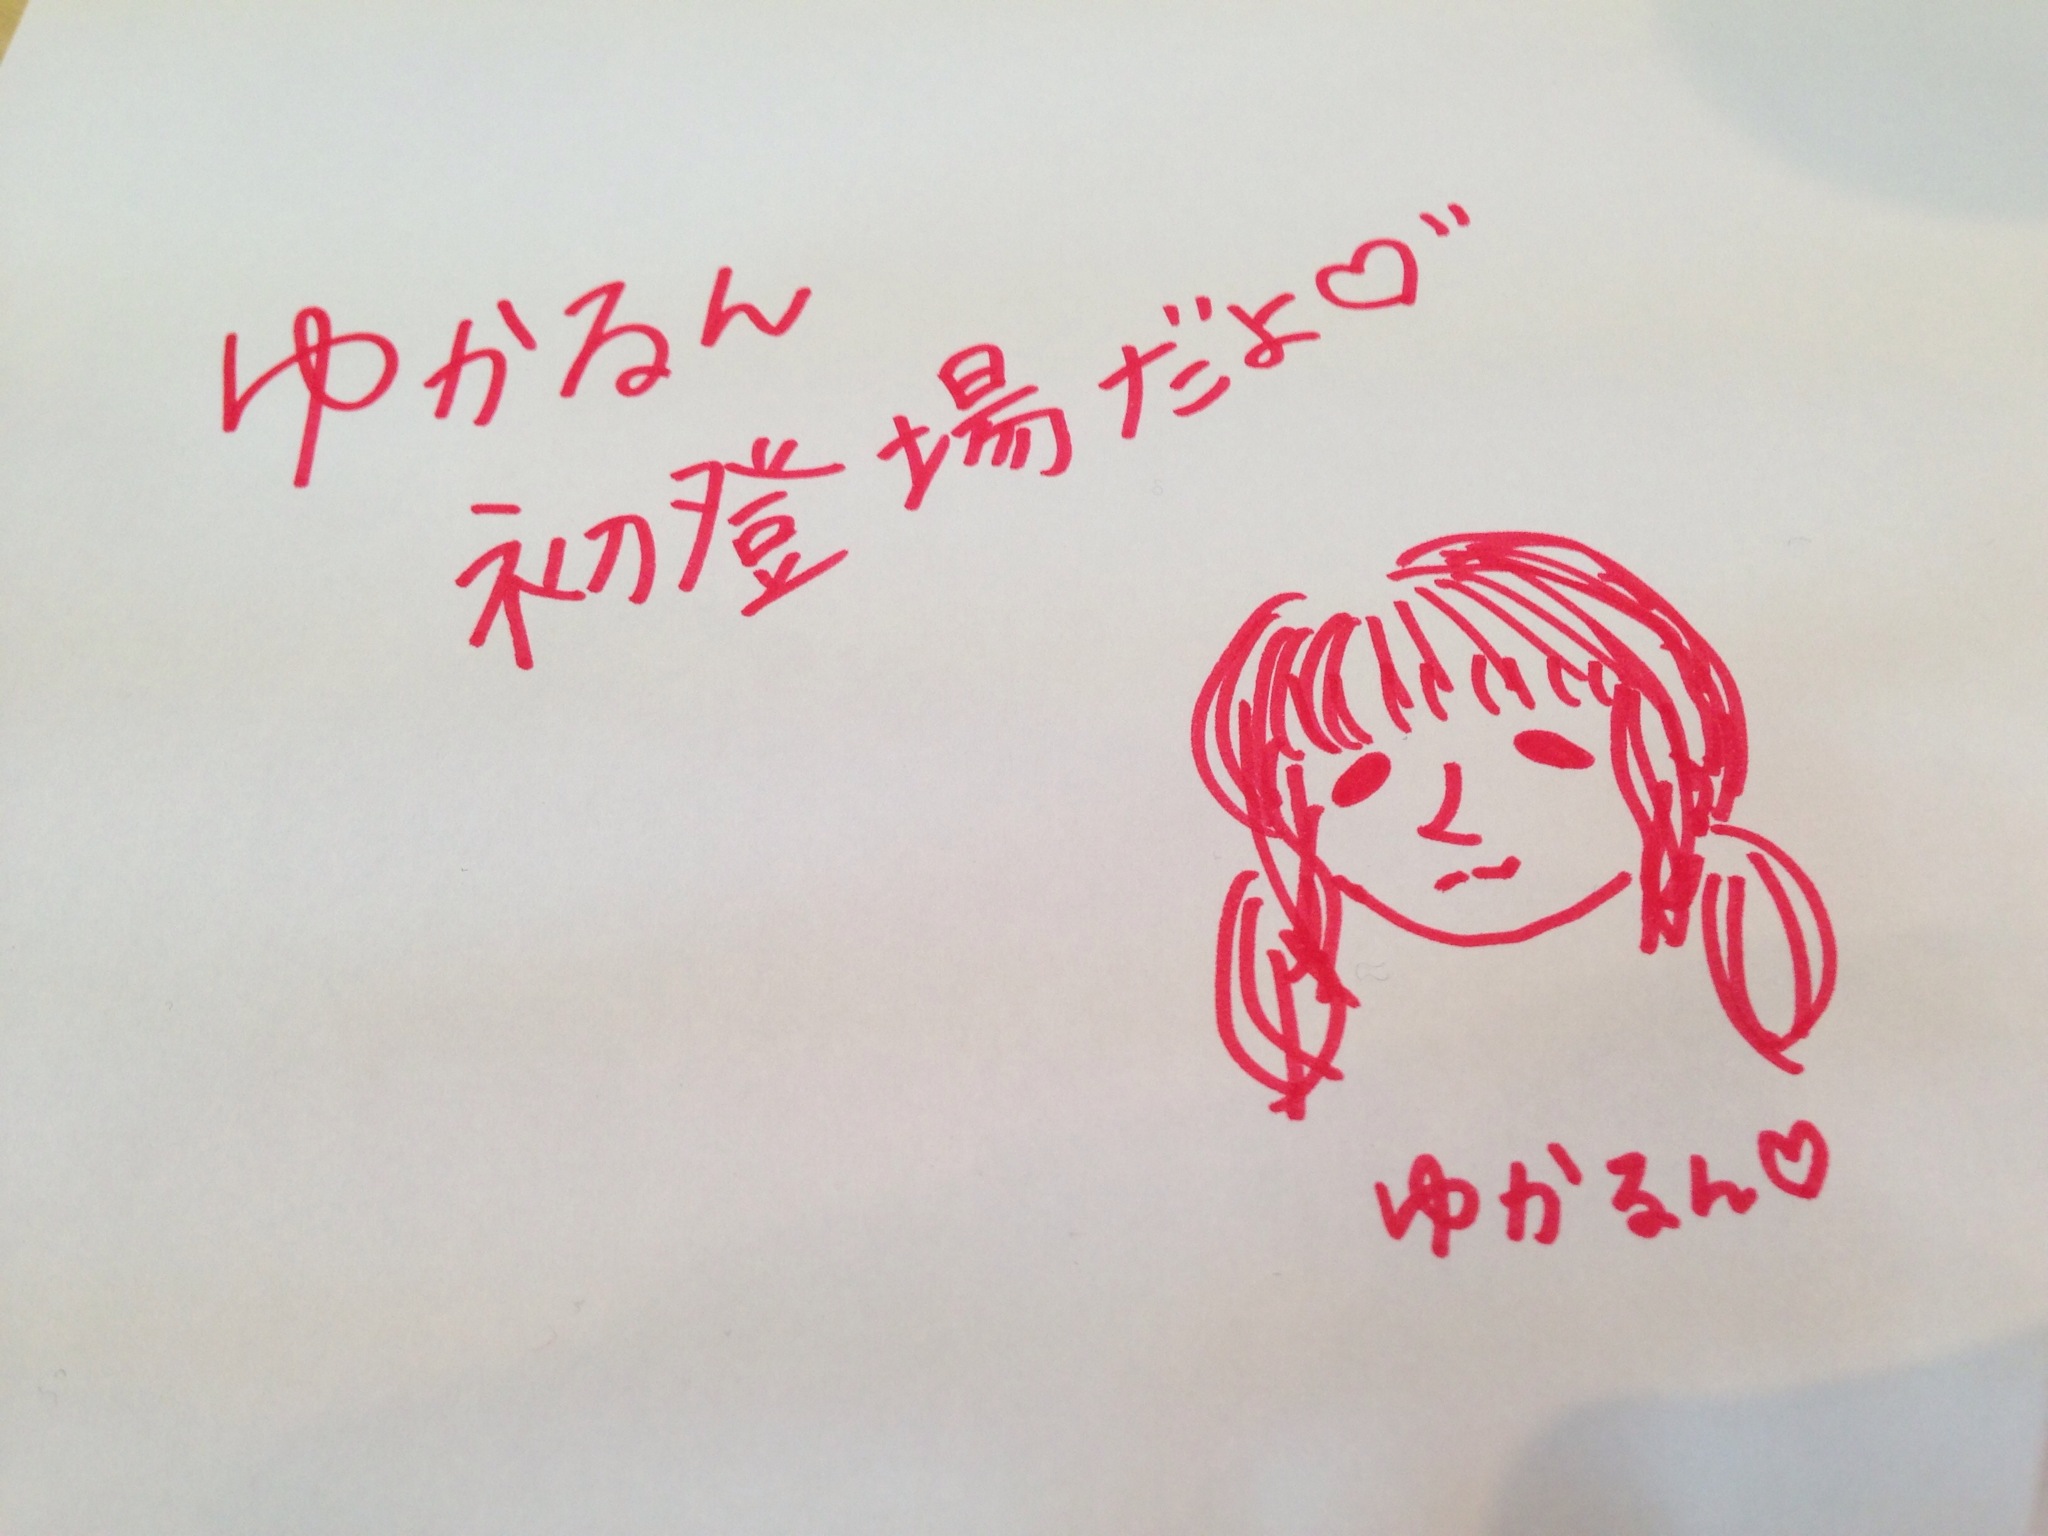 ゆかるん
初登場だよ♡
ゆかるん♡